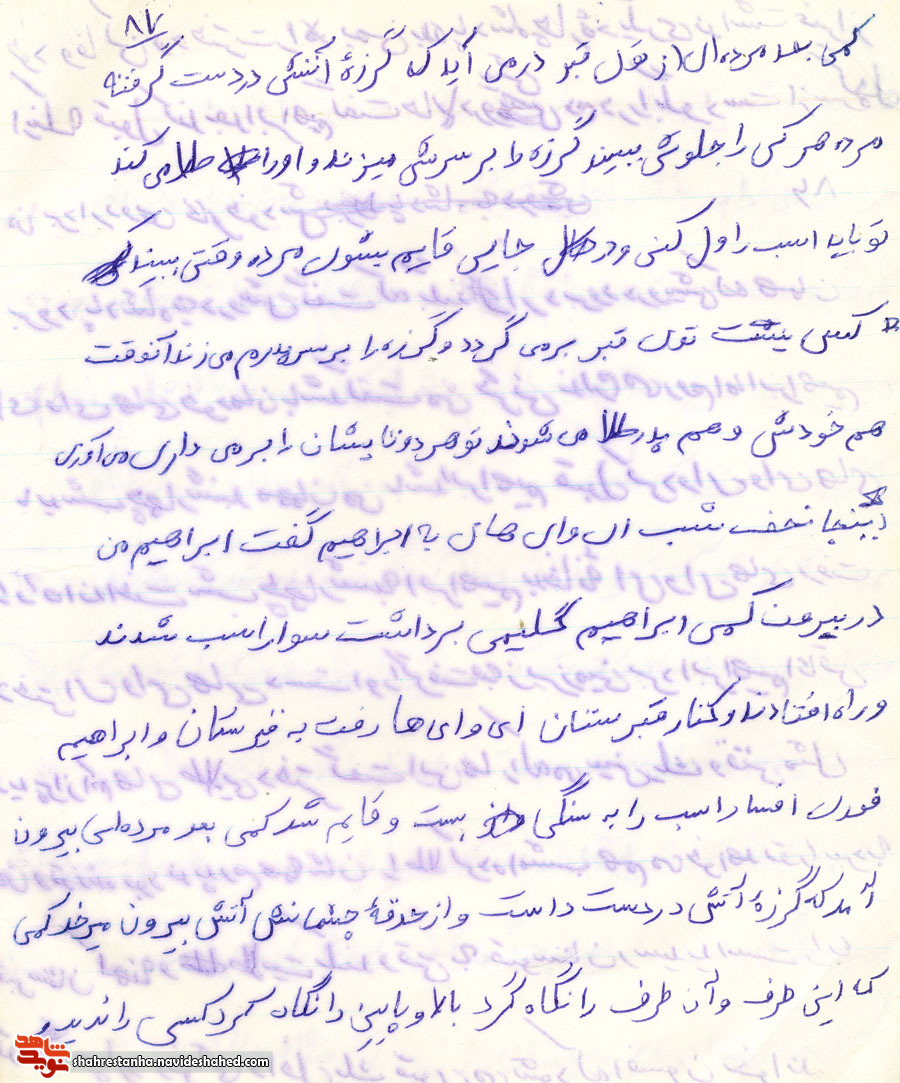 ۸۷
کمی بعد مرده ای از توی قبر درمی آید که گرزهٔ آتشی در دست گرفته
مرده هر کی را جلوش ببیند گرزه را بر سرش میزند و او را طلا می کند
تو باید اسب را ول کنی و در جایی قایم بشوی مرده وقتی ببیند
کسی نیست توی قبر برمی گردد و گرزه را بر سر پدرم می زند آنوقت
هم خودش و هم پدر طلا می شوند تو هر دو تایشان را برمی داری می آوری
اینجا نصف شب ای وای های به ابراهیم گفت ابراهیم من
در بیرون کمی ابراهیم گلیمی برداشت سوار اسب شدند
و راه افتادند و کنار قبرستان ای وای ها رفت به قبرستان و ابراهیم
فوری افسار اسب را به سنگی بست و قایم شد کمی بعد مرده ای بیرون
آمد که گرزهٔ آتش در دست داشت و از حدقهٔ چشمانش آتش بیرون میزد کمی
که این طرف و آن طرف را نگاه کرد بالا و پایین را نگاه کرد کسی را ندید و
نوید شاهد
shahrestanha.navideshahed.com